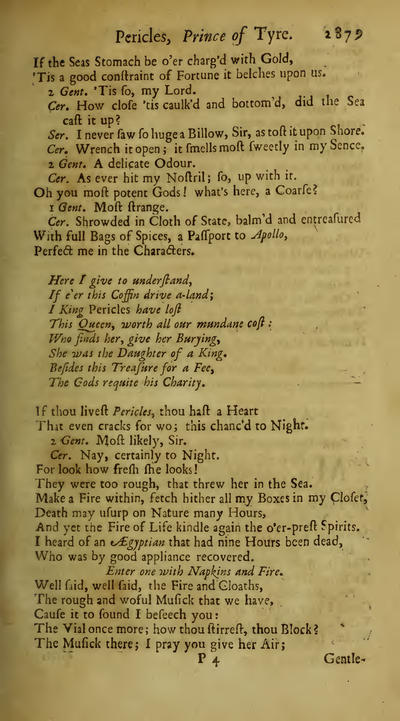 Pericles, Prince of Tyre. 2879
If the Seas Stomach be o'er charg'd with Gold,
'Tis a good conſtraint of Fortune it belches upon us.
2 Gent. 'Tis ſo, my Lord.
Cer. How cloſe 'tis caulk'd and bottom'd, did the Sea
caſt it up?
Ser. I never ſaw ſo huge a Billow, Sir, as toſt it upon Shore.
Cer. Wrench it open; it ſmells moſt ſweetly in my Sence.
2 Gent. A delicate Odour.
Cer. As ever hit my Noſtril; ſo, up with it.
Oh you moſt potent Gods! what's here, a Coarſe?
1 Gent. Moſt ſtrange.
Cer. Shrowded in Cloth of State, balm'd and entreaſured
With full Bags of Spices, a Paſſport to Apollo,
Perfect me in the Characters.
Here I give to underſtand,
If e'er this Coffin drive a-land;
I King Pericles have loſt
This Queen, worth all our mundane coſt:
Who finds her, give her Burying,
She was the Daughter of a King.
Beſides this Treaſure for a Fee,
The Gods requite his Charity.
If thou liveſt Pericles, thou haſt a Heart
That even cracks for wo; this chanc'd to Night.
2 Gent. Moſt likely, Sir.
Cer. Nay, certainly to Night.
For look how freſh ſhe looks!
They were too rough, that threw her in the Sea.
Make a Fire within, fetch hither all my Boxes in my Cloſet,
Death may uſurp on Nature many Hours,
And yet the Fire of Life kindle again the o'er-preſt Spirits.
I heard of an Ægyptian that had nine Hours been dead,
Who was by good appliance recovered.
Enter one with Napkins and Fire.
Well ſaid, well ſaid, the Fire and Cloaths,
The rough and woful Muſick that we have,
Cauſe it to ſound I beſeech you:
The Vial once more; how thou ſtirreſt, thou Block?
The Muſick there; I pray you give her Air;
P 4 Gentle-